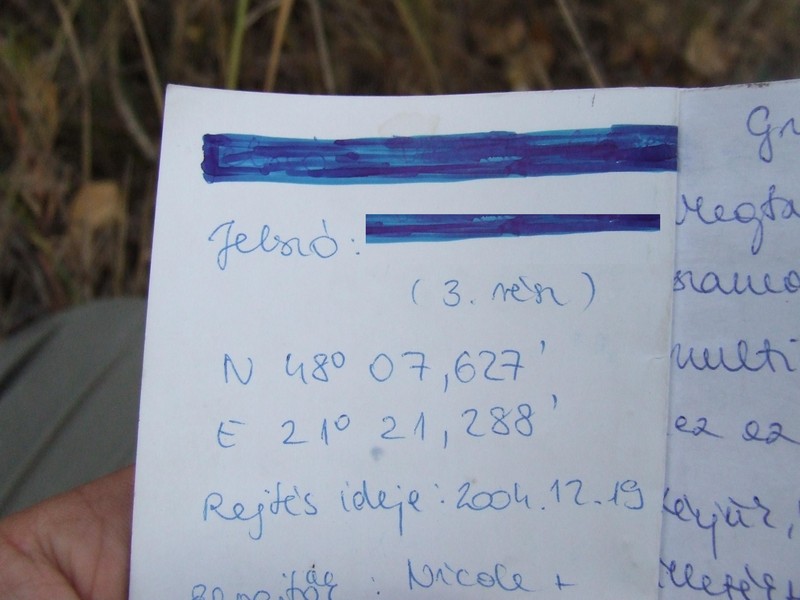 Jelszó:
(3. rész)
N 48° 07,627'
E 21° 21,288'
Rejtés ideje: 2004.12.19
Nicole +
Gr
Megta
multi
ez az